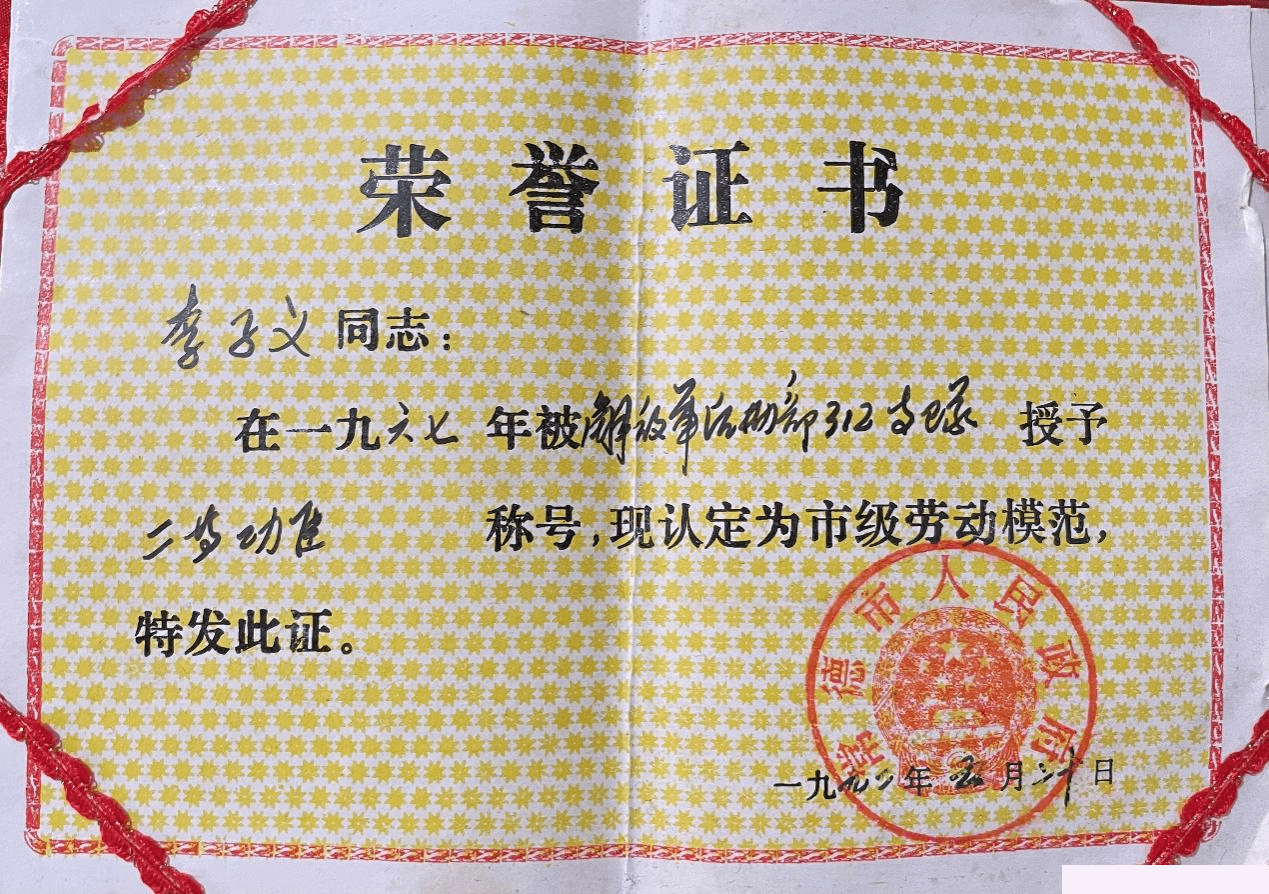 荣誉证书
李子义同志：
在一九六七年被解放军后勤部312支队授予
二等功臣称号，现认定为市级劳动模范，
特发此证。
常德市人民政府
一九九二年五月二十日